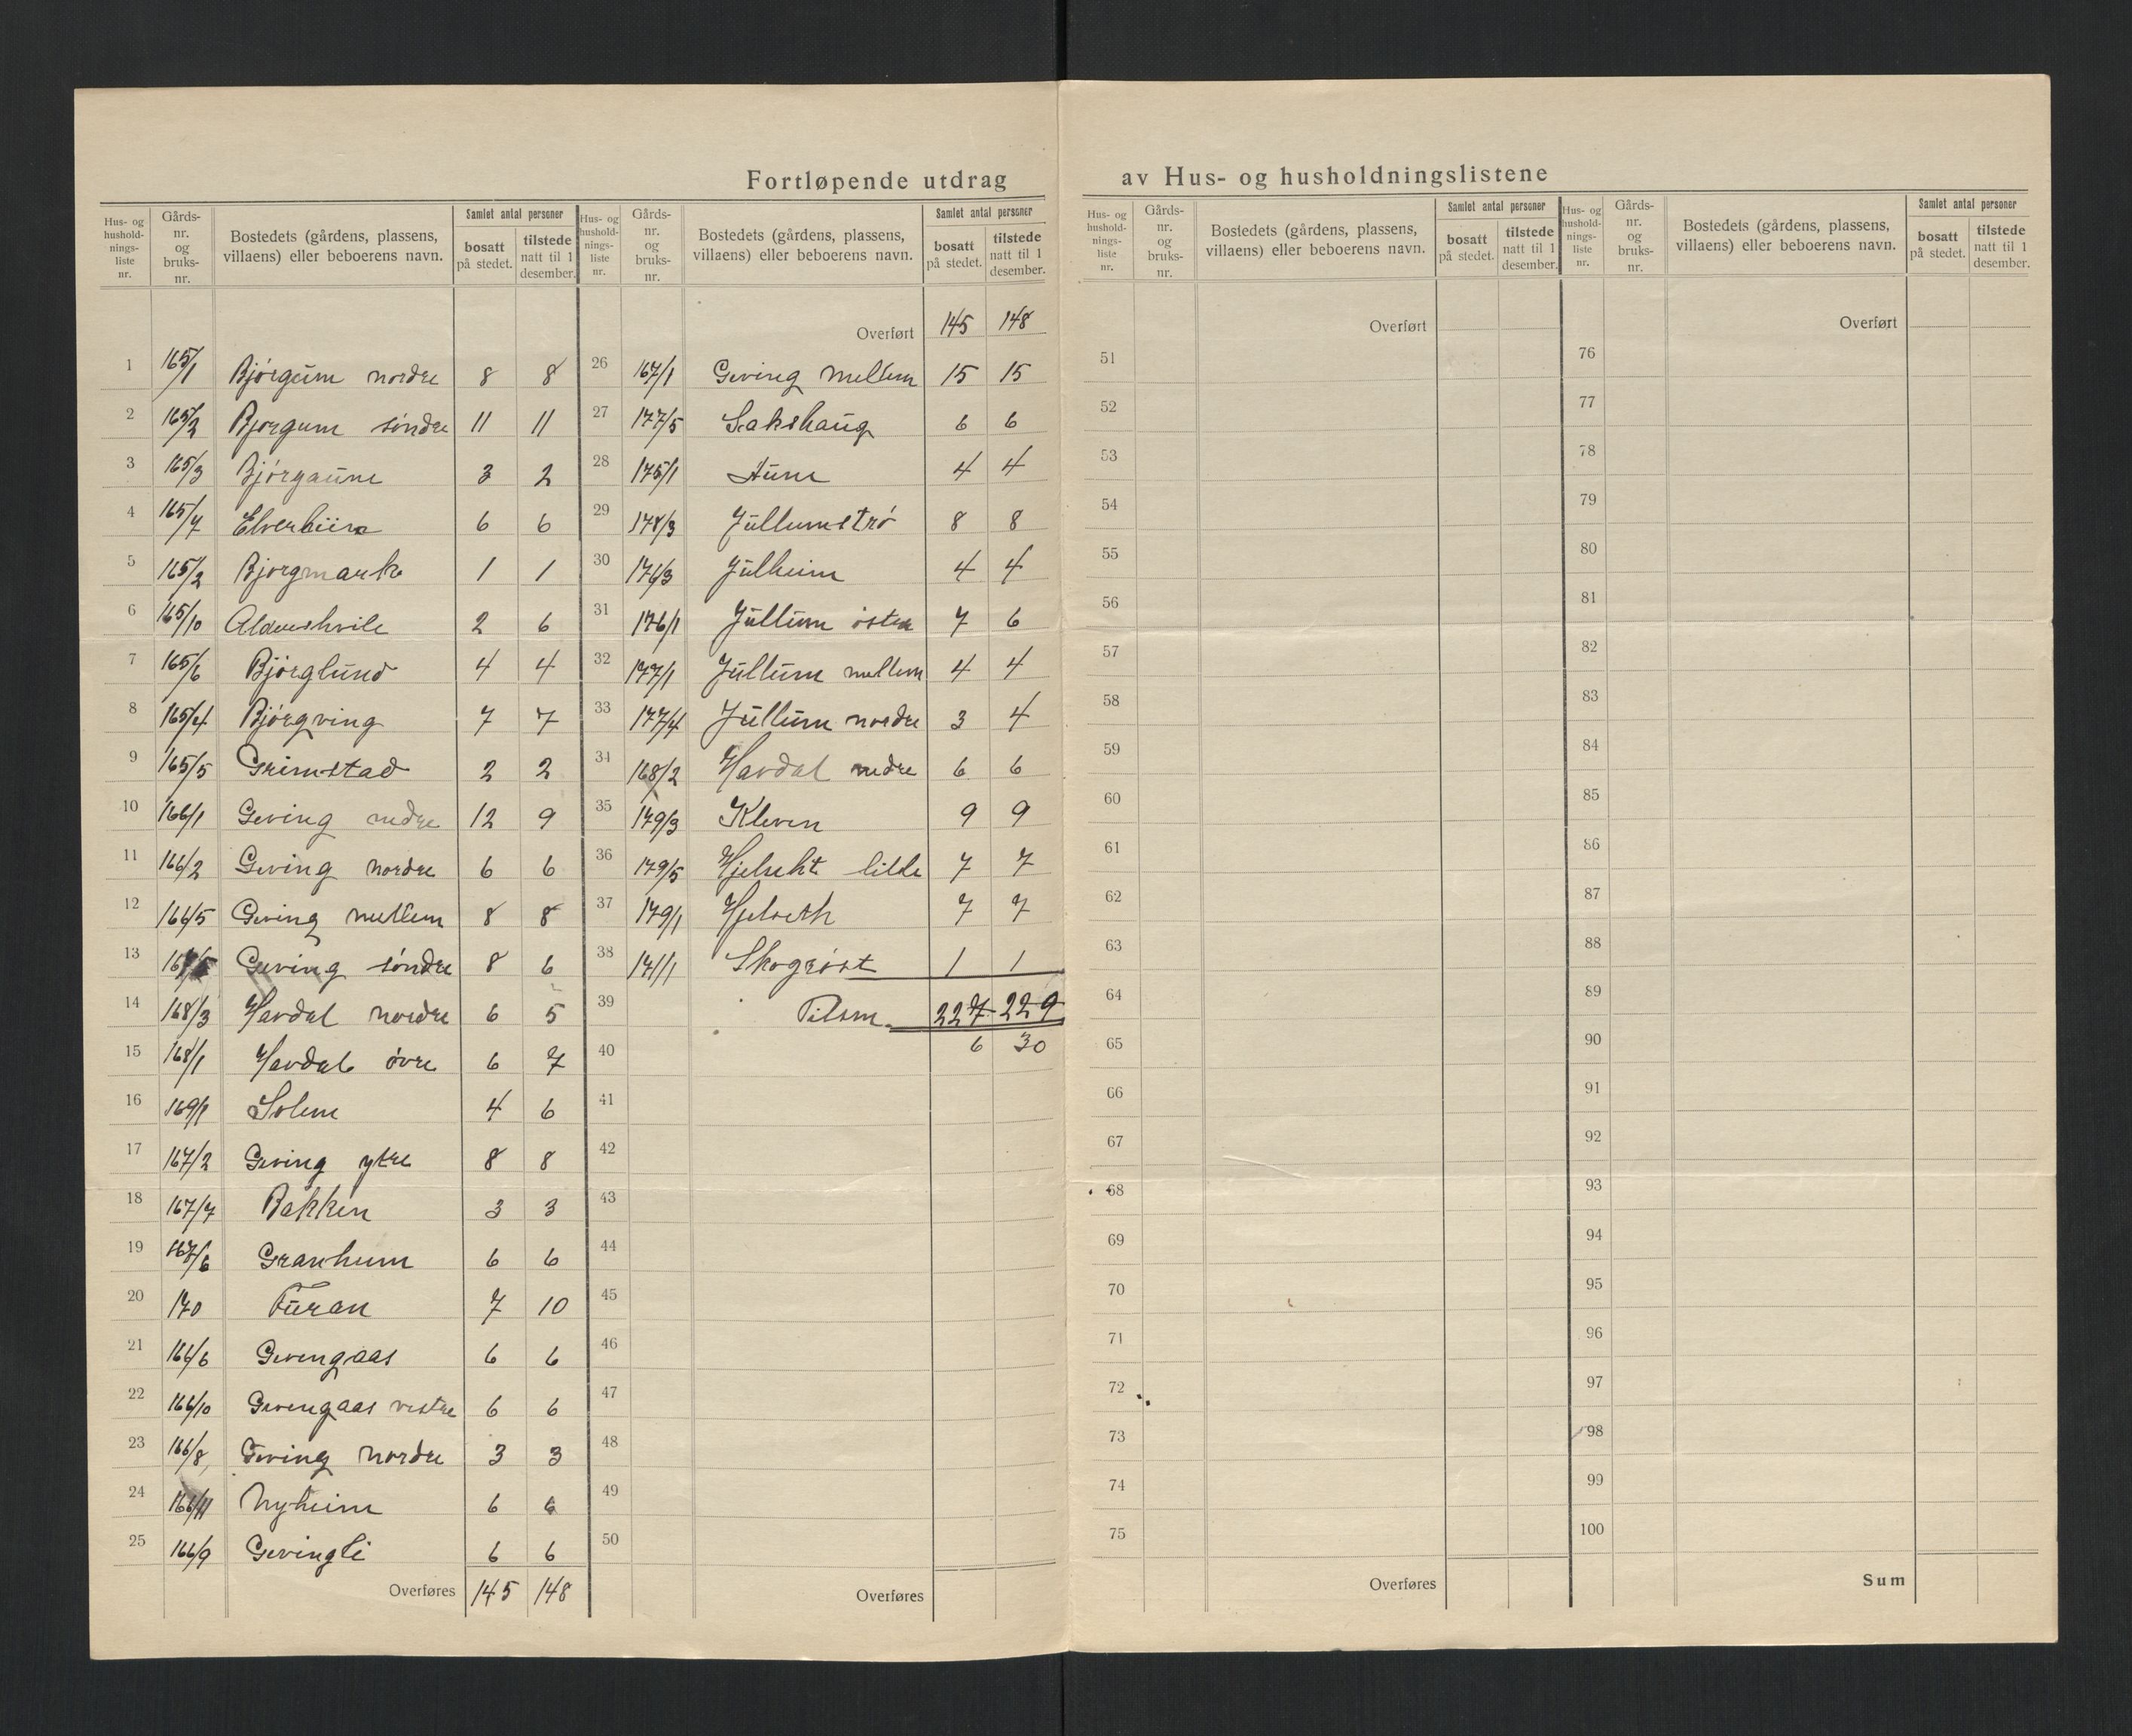 Fortløpende utdrag av Hus- og husholdningslistene
Hus- og husholdningsliste nr. | Gårdsnr. og bruksnr. | Bostedets (gårdens, plassens, villaens) eller beboerens navn. | Samlet antal personer bosatt på stedet. | tilstede natt til 1 desember.
1 165/1 Bjørgum nordre 8 8
2 165/2 Bjørgum søndre 11 11
3 165/3 Bjørgaune 3 2
4 165/7 6 6
5 165/2 Bjørgmark 1 1
6 165/10 2 6
7 165/6 Bjørglund 4 4
8 165/4 Bjørgving 7 7
9 165/5 Grimstad 2 2
10 166/1 Geving nedre 12 9
11 166/2 Geving nordre 6 6
12 166/5 Geving mellem 8 8
13 Geving søndre 8 6
14 168/3 Havdal nordre 6 5
15 168/1 Havdal øvre 6 7
16 169/1 Solem 4 6
17 167/2 Geving ytre 8 8
18 167/7 Bakken 3 3
19 167/6 Granheim 6 6
20 170 Furan 7 10
21 166/6 Gevingaas 6 6
22 166/10 Gevingaas vestre 6 6
23 166/8 Geving nordre 3 3
24 166/11 Nyheim 6 6
25 166/9 Gevingli 6 6
Overføres 145 148
Hus- og husholdningsliste nr. | Gårdsnr. og bruksnr. | Bostedets (gårdens, plassens, villaens) eller beboerens navn. | Samlet antal personer bosatt på stedet. | tilstede natt til 1 desember.
Overført 145 148
26 167/1 Geving mellem 15 15
27 177/5 Sakshaug 6 6
28 175/1 Aune 4 4
29 178/3 Jullumstrø 8 8
30 176/3 Julheim 4 4
31 176/1 Jullum østre 7 6
32 177/1 Jullum mellem 4 4
33 177/4 Jullum nordre 3 4
34 168/2 Havdal nedre 6 6
35 179/3 Kleven 9 9
36 179/5 lille 7 7
37 179/1 Hjelseth 7 7
38 171/1 Skogrøst 1 1
39 Tilsm. 227 229
40 6 30
41
42
43
44
45
46
47
48
49
50
Overføres
Hus- og husholdningsliste nr. | Gårdsnr. og bruksnr. | Bostedets (gårdens, plassens, villaens) eller beboerens navn. | Samlet antal personer bosatt på stedet. | tilstede natt til 1 desember.
Overført
51
52
53
54
55
56
57
58
59
60
61
62
63
64
65
66
67
68
69
70
71
72
73
74
75
Overføres
Hus- og husholdningsliste nr. | Gårdsnr. og bruksnr. | Bostedets (gårdens, plassens, villaens) eller beboerens navn. | Samlet antal personer bosatt på stedet. | tilstede natt til 1 desember.
Overført
76
77
78
79
80
81
82
83
84
85
86
87
88
89
90
91
92
93
94
95
96
97
98
99
100
Sum